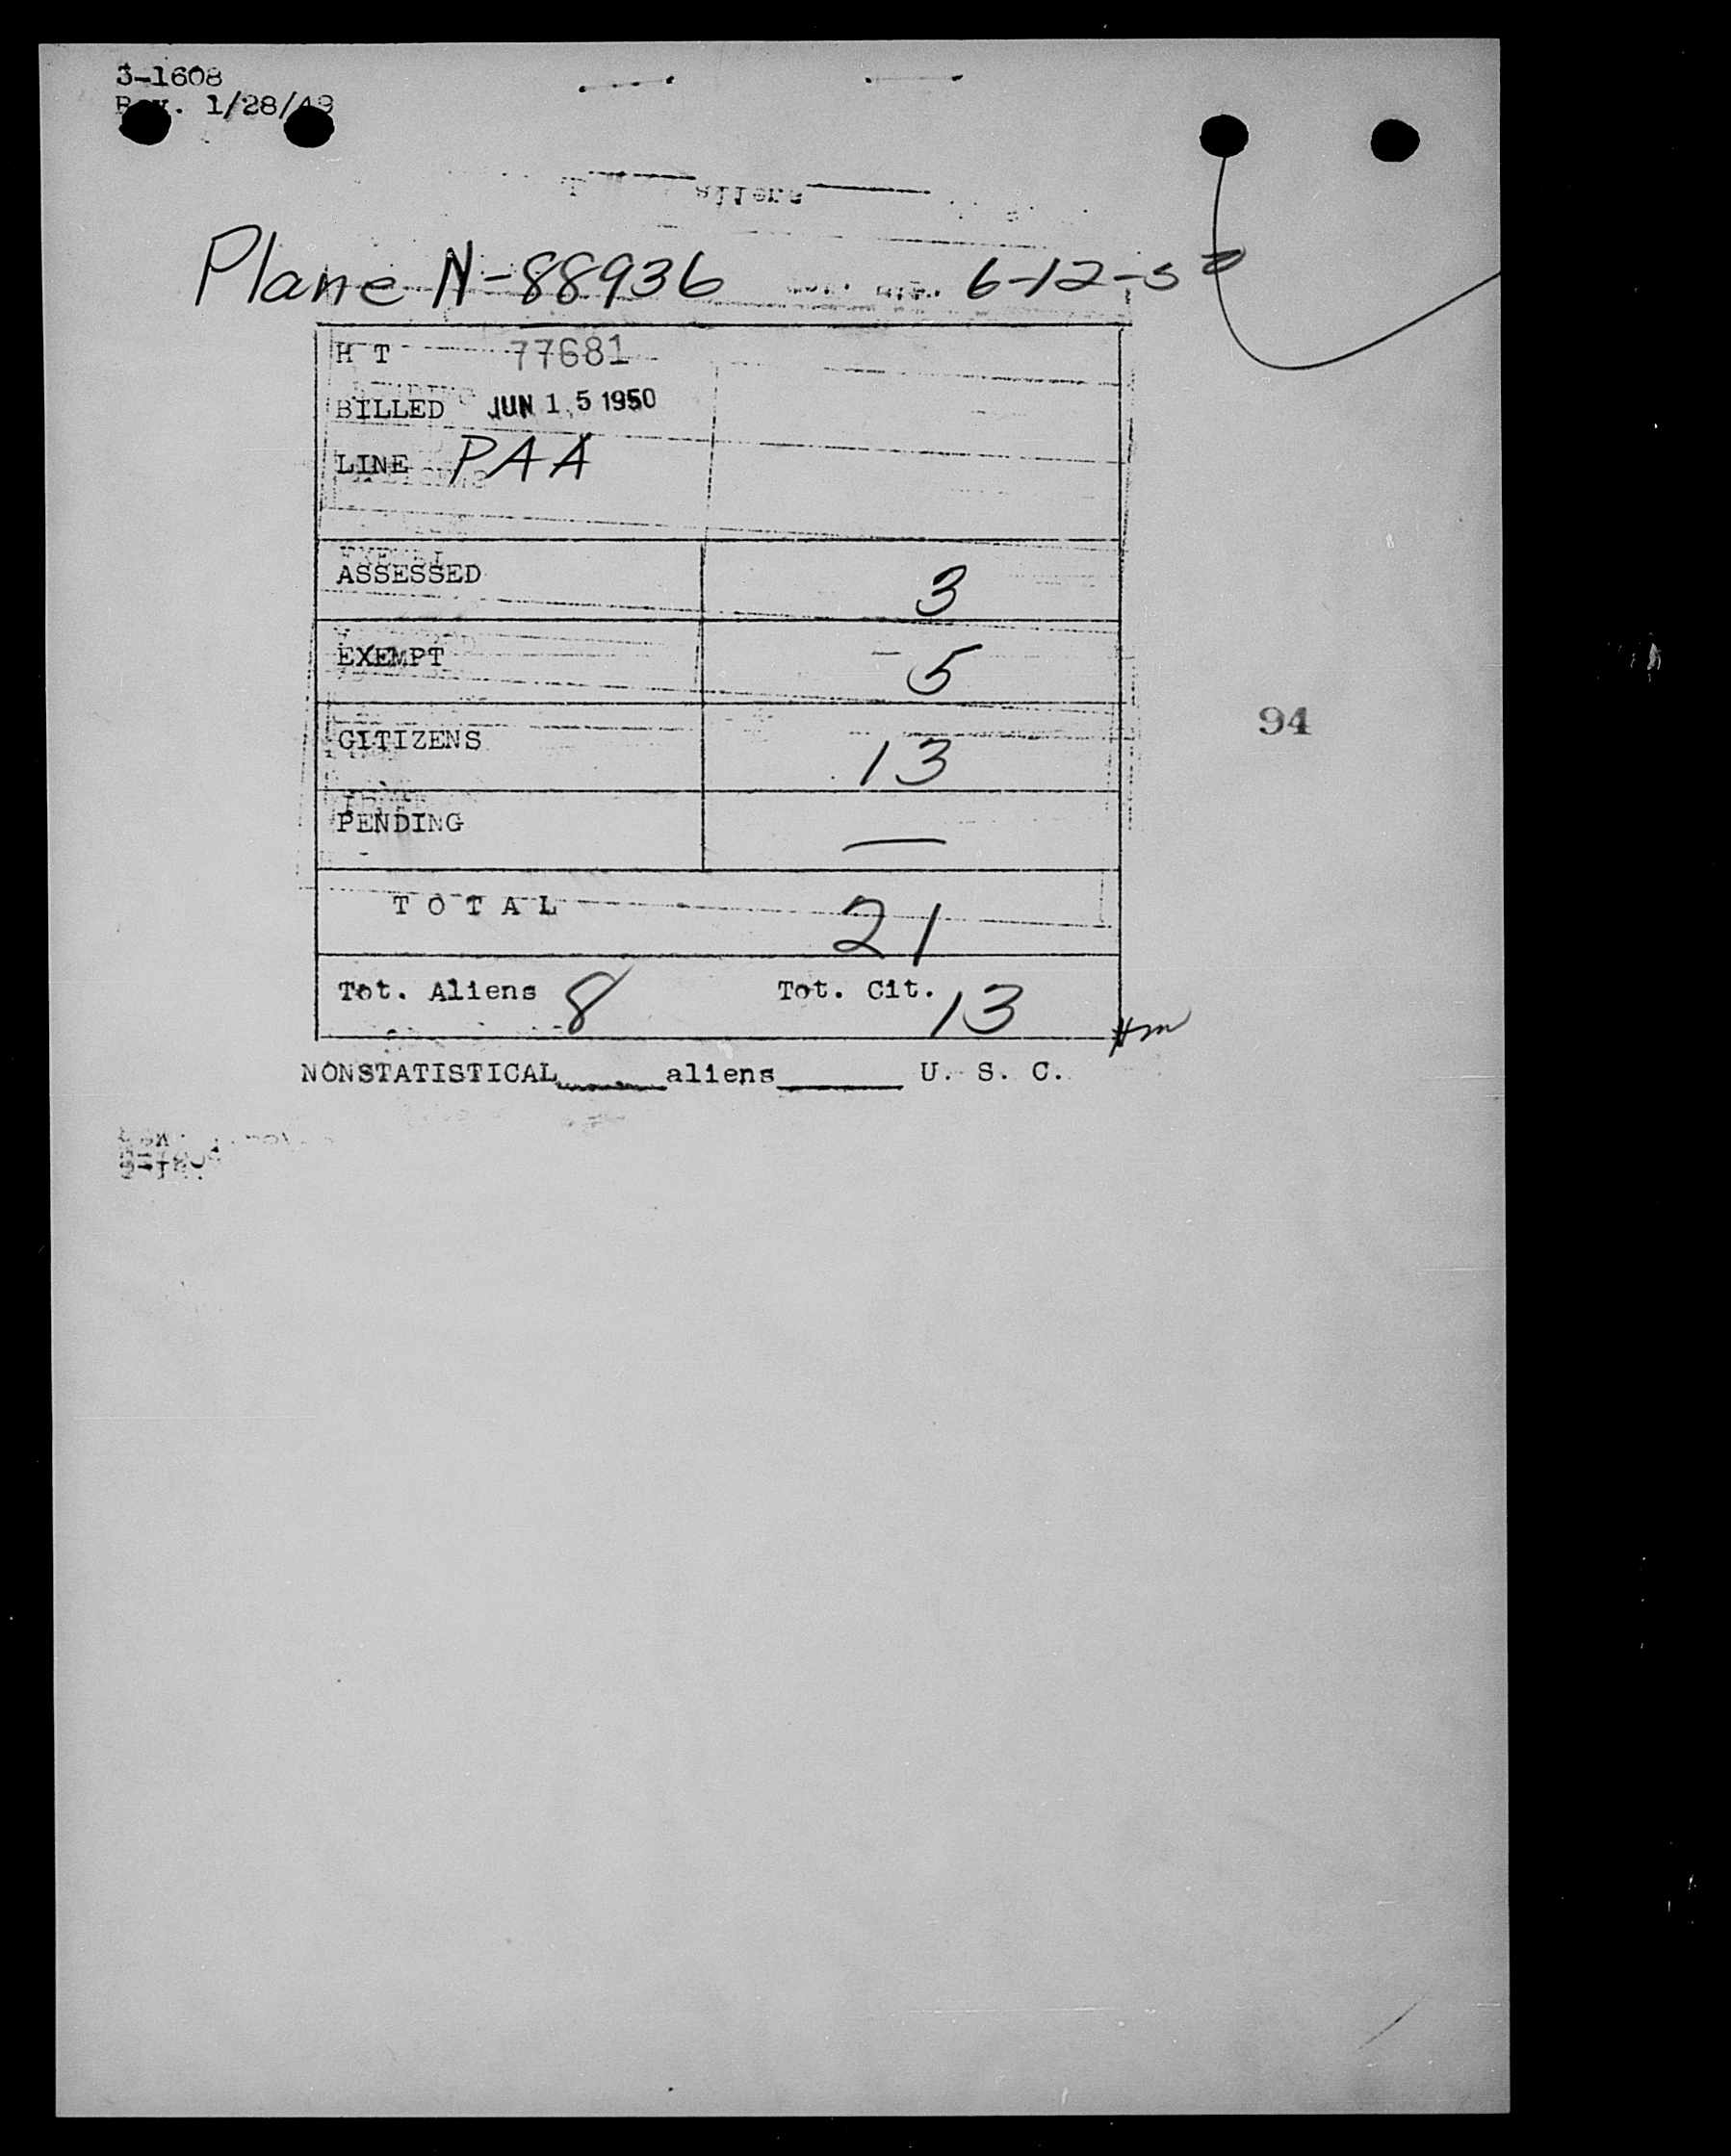 3-1608
Rev. 1/28/49
Plane N-88936 6-12-50
H T 77681
BILLED JUN 15 1950
LINE PAA
ASSESSED 3
EXEMPT 5
94
CITIZENS 13
PENDING —
T O T A L 21
Tot. Aliens 8 Tot. Cit. 13
NONSTATISTICAL______aliens______ U. S. C.